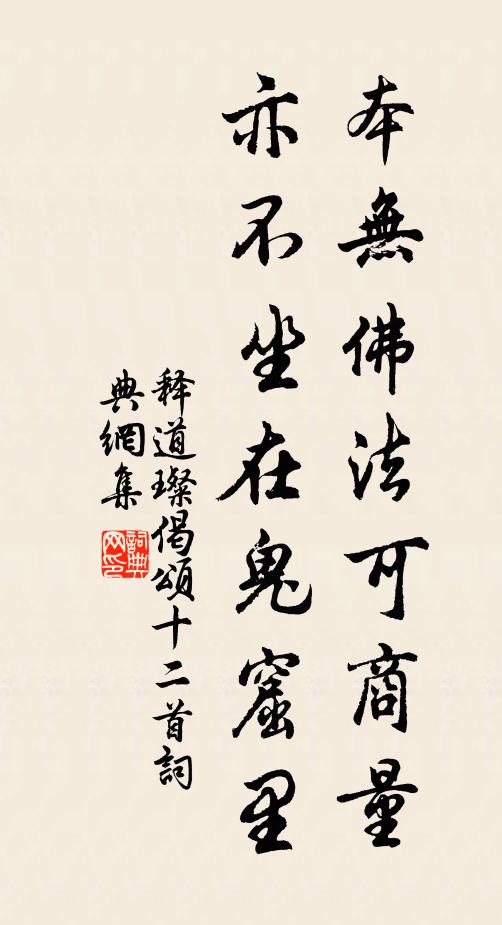 本無佛法可商量
亦不坐在鬼窟里
释道璨偈頌十二首詞
典網集
詞典
网印